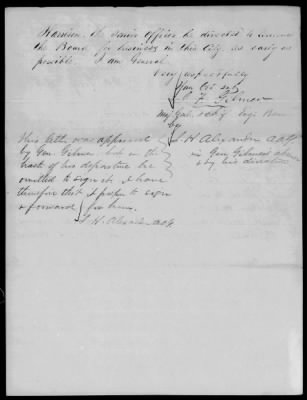 the Senior Officer be directed to
the Board for business in this City as early as
possible. I am General
Very respectfully
Your Obt Sevt
J. F. Gilmer
Maj Genl & Chf Engr Bureau
by
S H Alexander
in Genl Gilmer's absence
& by his direction
This letter was approved
by Gen. Gilmer but in the
haste of his departure he
omitted to sign it. I have
therefore that I propose to sign
& forward for him.
S. H. Alexander